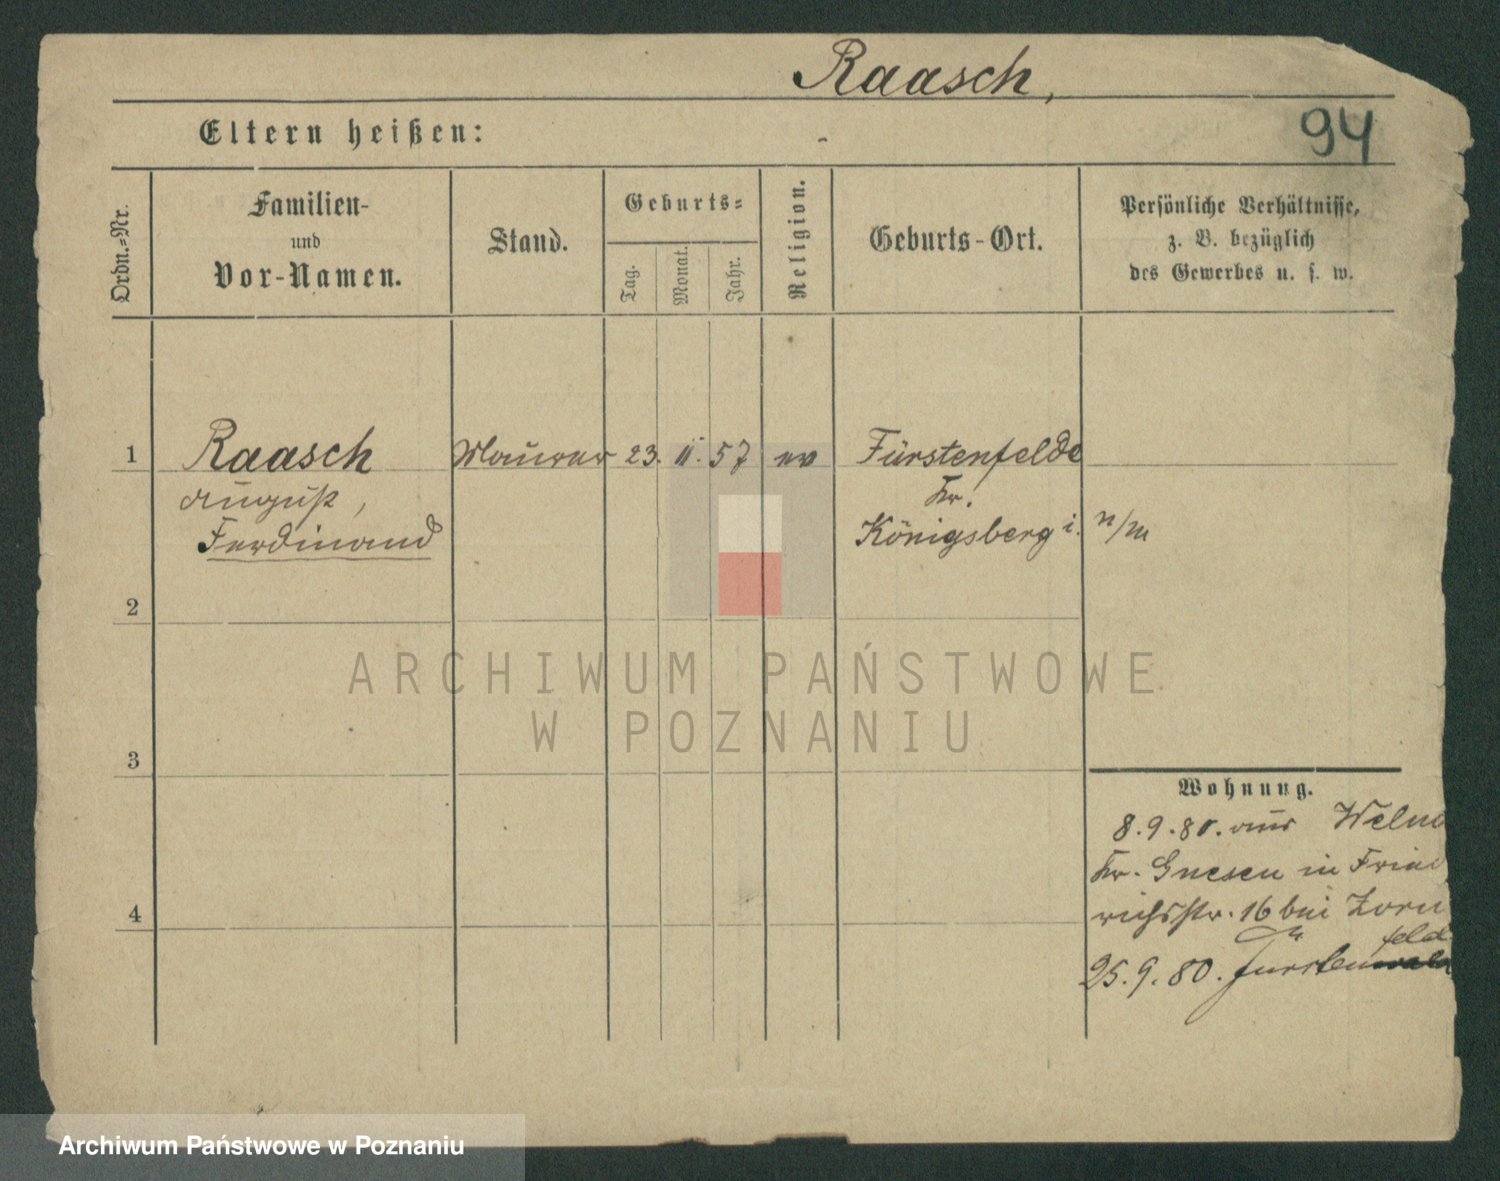 Raasch,
94
Eltern heißen:
Ordn.-Nr.
Familien-
und
Vor-Namen.
Stand.
Geburts-
Tag.
Monat.
Jahr.
Religion.
Geburts-Ort.
Persönliche Verhältnisse,
z. B. bezüglich
des Gewerbes u. s. w.
1 Raasch Maurer 23. 57 ev Fürstenfelde
August, Kr.
Ferdinand Königsberg i. n/m
2
ARCHIWUM PAŃSTWOWE
W POZNANIU
3
Wohnung.
8.9.80. aus Welna
Kr. Gnesen in Fried
4
richsstr. 16 bei Zorn
feld
25.9.80. Fürstenwald
Archiwum Państwowe w Poznaniu